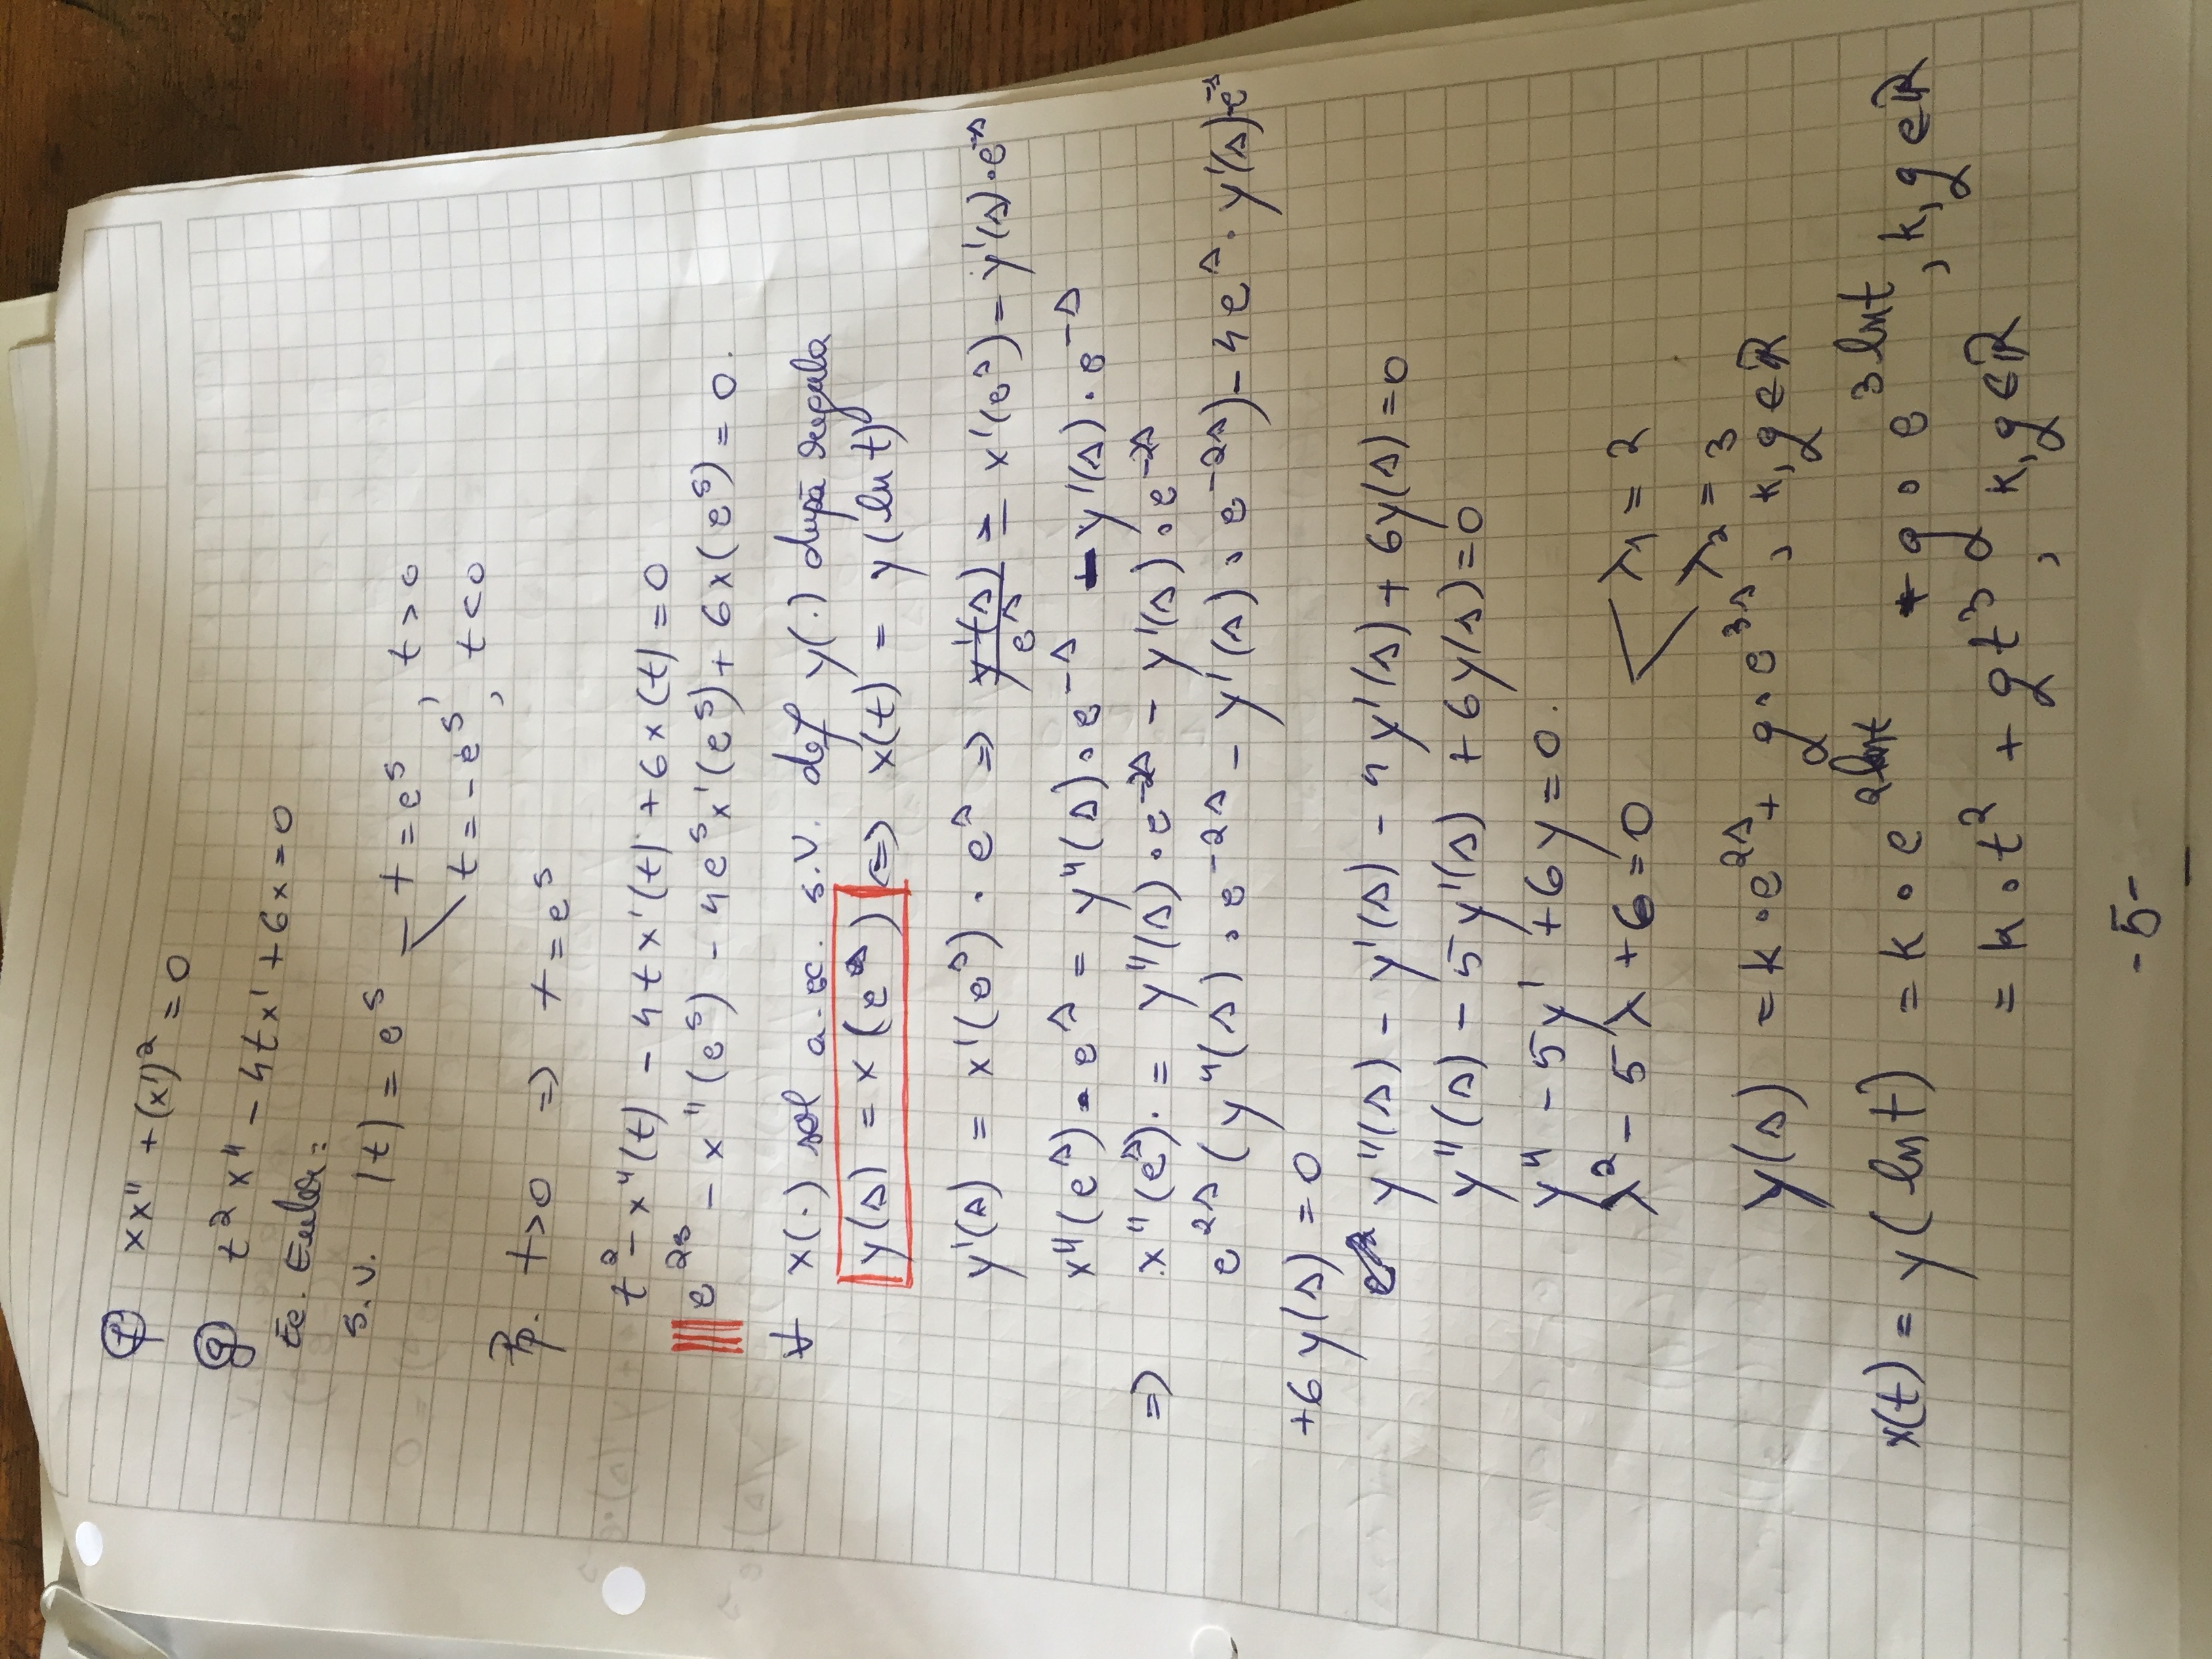 f xx" + (x')² = 0
g t² x" - 4tx' + 6x = 0
Ec. Euler:
s.v. |t| = e^s — t = e^s, t > 0
t = -e^s, t < 0
Pp. t>0 => t = e^s
t² - x"(t) - 4tx'(t) + 6x(t) = 0
e^2s - x"(e^s) - 4e^s x'(e^s) + 6x(e^s) = 0.
∀ x(·) sol a. ec. s.v. def y(·) după regula
y(s) = x(e^s) <=> x(t) = y(ln t)
y'(s) = x'(e^s) · e^s => y'(s)/e^s = x'(e^s) = y'(s)·e^-s
x"(e^s) · e^s = y"(s) · e^-s - y'(s) · e^-s
=> x"(e^s) · = y"(s) · e^-2s - y'(s) · e^-2s
e^2s (y"(s) · e^-2s - y'(s) · e^-2s) - 4e^s · y'(s)·e^-s
+6 y(s) = 0
y"(s) - y'(s) - 4y'(s) + 6y(s) = 0
y"(s) - 5y'(s) + 6y(s) = 0
y" - 5y' + 6y = 0.
λ² - 5λ + 6 = 0 λ₁ = 2
λ₂ = 3
y(s) = k · e^2s + g · e^3s, k, g ∈ ℝ
x(t) = y(ln t) = k · e^2lnt + g · e^3lnt, k, g ∈ ℝ
= k · t² + gt³, k, g ∈ ℝ
-5-